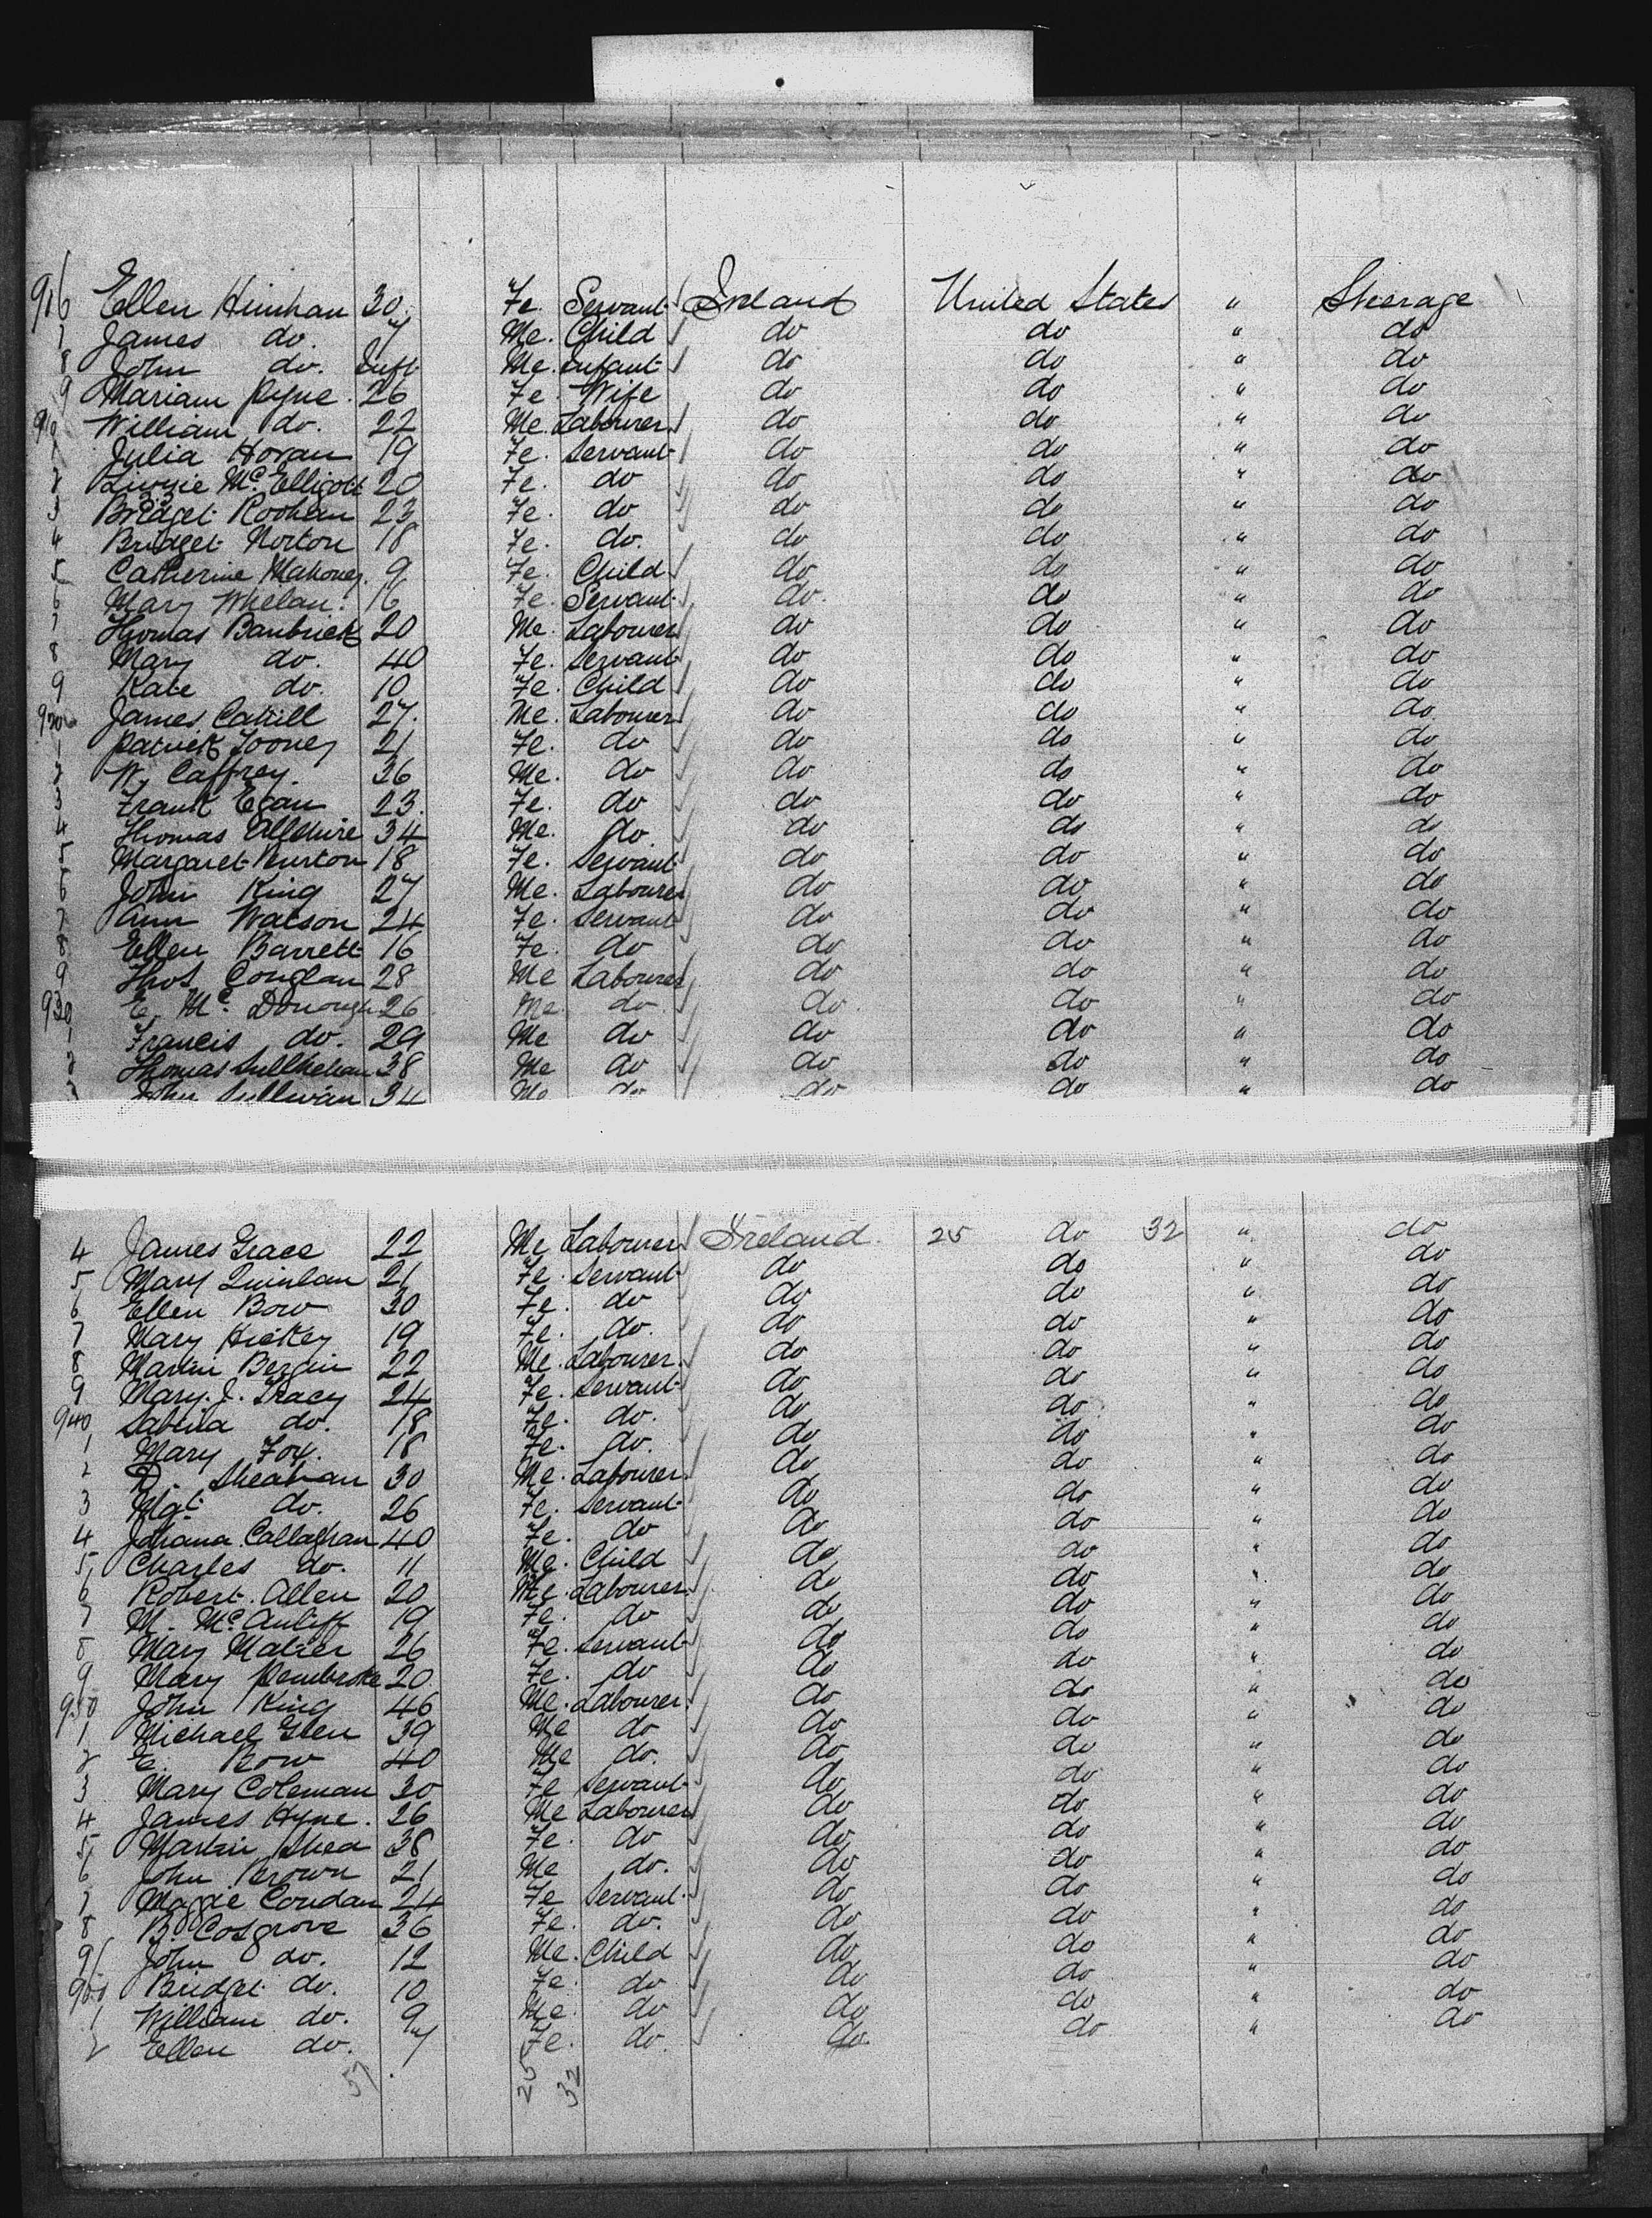 916 Ellen Hinihan 30 Fe. Servant Ireland United States " Steerage
7 James do. 7 Me. Child do do " do
8 John do. Inft Me. Infant do do " do
9 Mariam Pyne. 26 Fe. Wife do do " do
910 William do. 22 Me. Labourer do do " do
1 Julia Horan 19 Fe. Servant do do " do
2 Lizzie McElligott 20 Fe. do do do " do
3 Bridget 23 Fe. do do do " do
4 Bridget Norton 18 Fe. do. do do " do
5 Catherine Mahoney. 9 Fe. Child do do " do
6 Mary Whelan. 16 Fe. Servant do. do " do
7 Thomas Banbrick 20 Me. Labourer do do " do
8 Mary do. 40 Fe. Servant do do " do
9 Kate do. 10 Fe. Child do do " do
920 James Cahill 27. Me. Labourer do do " do
1 Patrick Tooney 21 Fe. do do do " do
2 W. Caffrey. 36 Me. do do do " do
3 Frank Egan 23. Fe. do do do " do
4 Thomas 34 Me. do do do " do
5 Margaret Burton 18 Fe. Servant do do " do
6 John King 27 Me. Labourer do do " do
7 Ann Watson 24 Fe. Servant do do " do
8 Ellen Barrett 16 Fe. do do do " do
9 Thos Conglan 28 Me Labourer do do " do
930 E. Mc. Donough 26 Me. do do. do " do
1 Francis do. 29 Me do do do " do
2 Thomas 38 Me do do do " do
3 John Sullivan 34 Me do do do " do
4 James Grace 22 Me Labourer Ireland. 25 do 32 " do
5 Mary Quinlan 21 Fe. Servant do do " do
6 Ellen Bow 30 Fe. do do do " do
7 Mary Hickey 19 Fe. do. do do " do
8 Martin Bergin 22 Me. Labourer. do do " do
9 Mary. J. Tracy 24 Fe. Servant do do " do
940 Sabina do. 18 Fe. do. do do " do
1 Mary Fox. 18 Fe. do. do do " do
2 D. Sheahan 30 Me. Labourer. do do " do
3 Mgt. do. 26 Fe. Servant do do " do
4 Johana Callaghan 40 Fe. do do do " do
5 Charles do. 11 Me. Child do do " do
6 Robert. Allen 20 Me. Labourer. do do " do
7 M. McAuliff 19 Fe. do do do " do
8 Mary Malzer 26 Fe. Servant do do " do
9 Mary Pembroke 20 Fe. do do do " do
950 John King 46 Me. Labourer. do do " do
1 Michael Glen 39 Me do do do " do
2 E. Bow 40 Me do. do do " do
3 Mary Coleman 30 Fe Servant do do " do
4 James Hyne. 26 Me Labourer do do " do
5 Martin Shea 38 Fe. do do do " do
6 John Brown 21 Me do. do do " do
7 Maggie Condan 24 Fe Servant. do do " do
8 B. Cosgrove 36 Fe. do. do do " do
9 John do. 12 Me. Child do do " do
960 Bridget do. 10 Fe. do do do " do
1 William do. 9 Me. do do do " do
2 Ellen do. 7 Fe. do. do. do " do
57 25 32